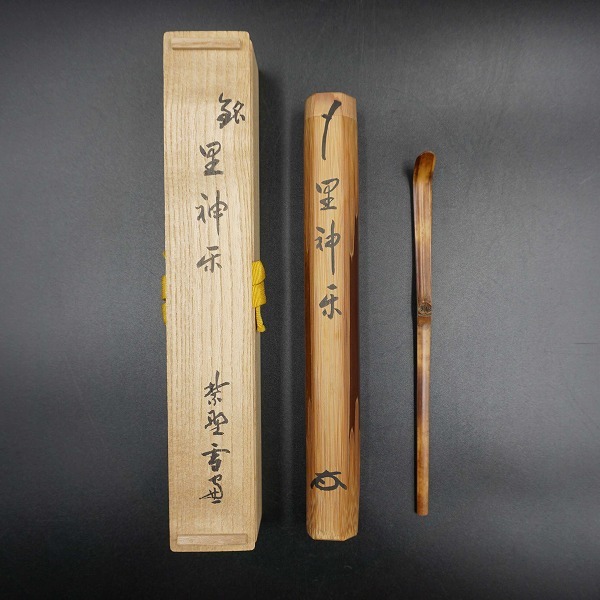 銘
里神楽
紫野雪
里神楽